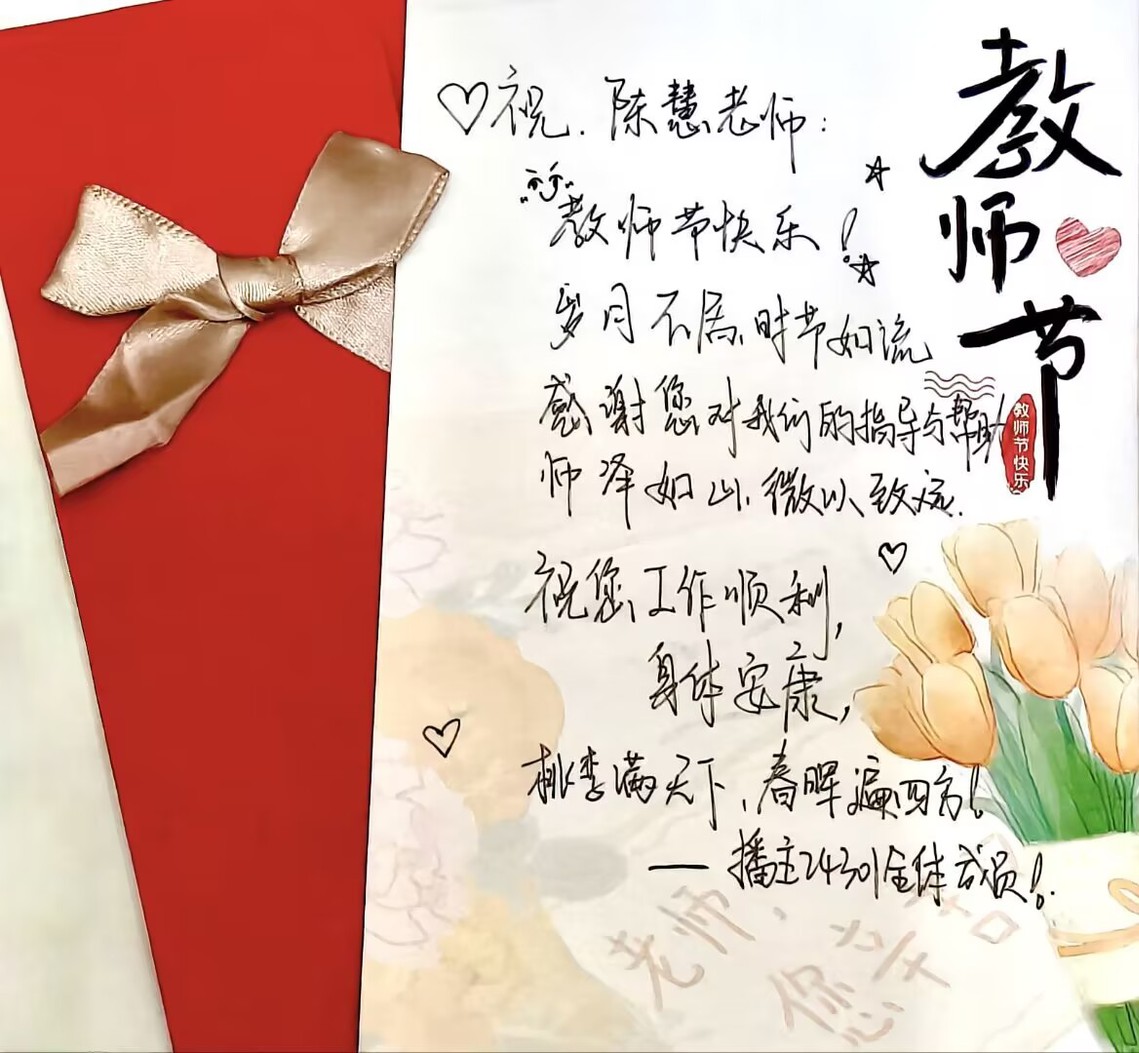 祝.陈慧老师:
教师节快乐!
岁月不居,时节如流
感谢您对我们的指导与帮助
师泽如山,微以致远.
祝您工作顺利,
身体安康,
桃李满天下,春晖遍四方!
——播主2430全体成员!
教师节
教师节快乐
老师,
您辛苦